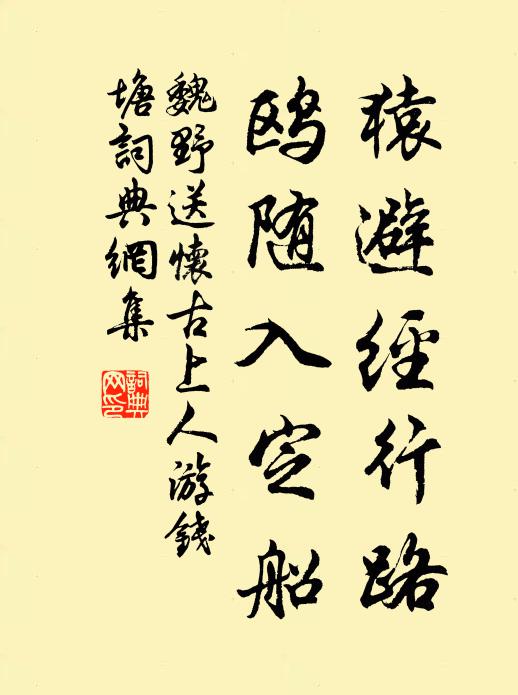 猿避經行路
鸥随入定船
魏野送懷古上人游錢
塘詞典網集
詞典
网印